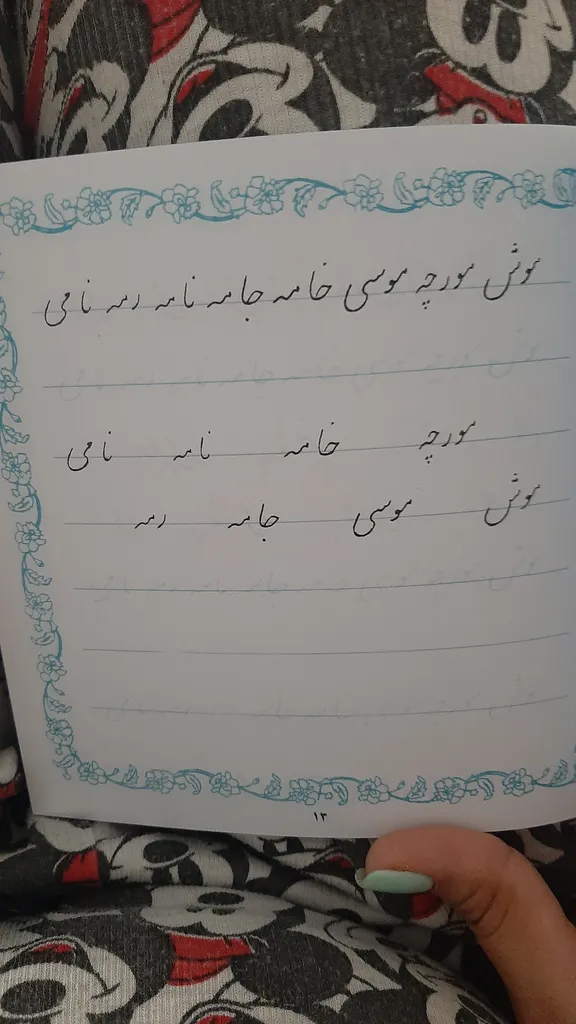 موش مورچه موسی خامه جامه نامه رمه نامی
مورچه خامه نامه نامی
موش موسی جامه رمه
۱۳